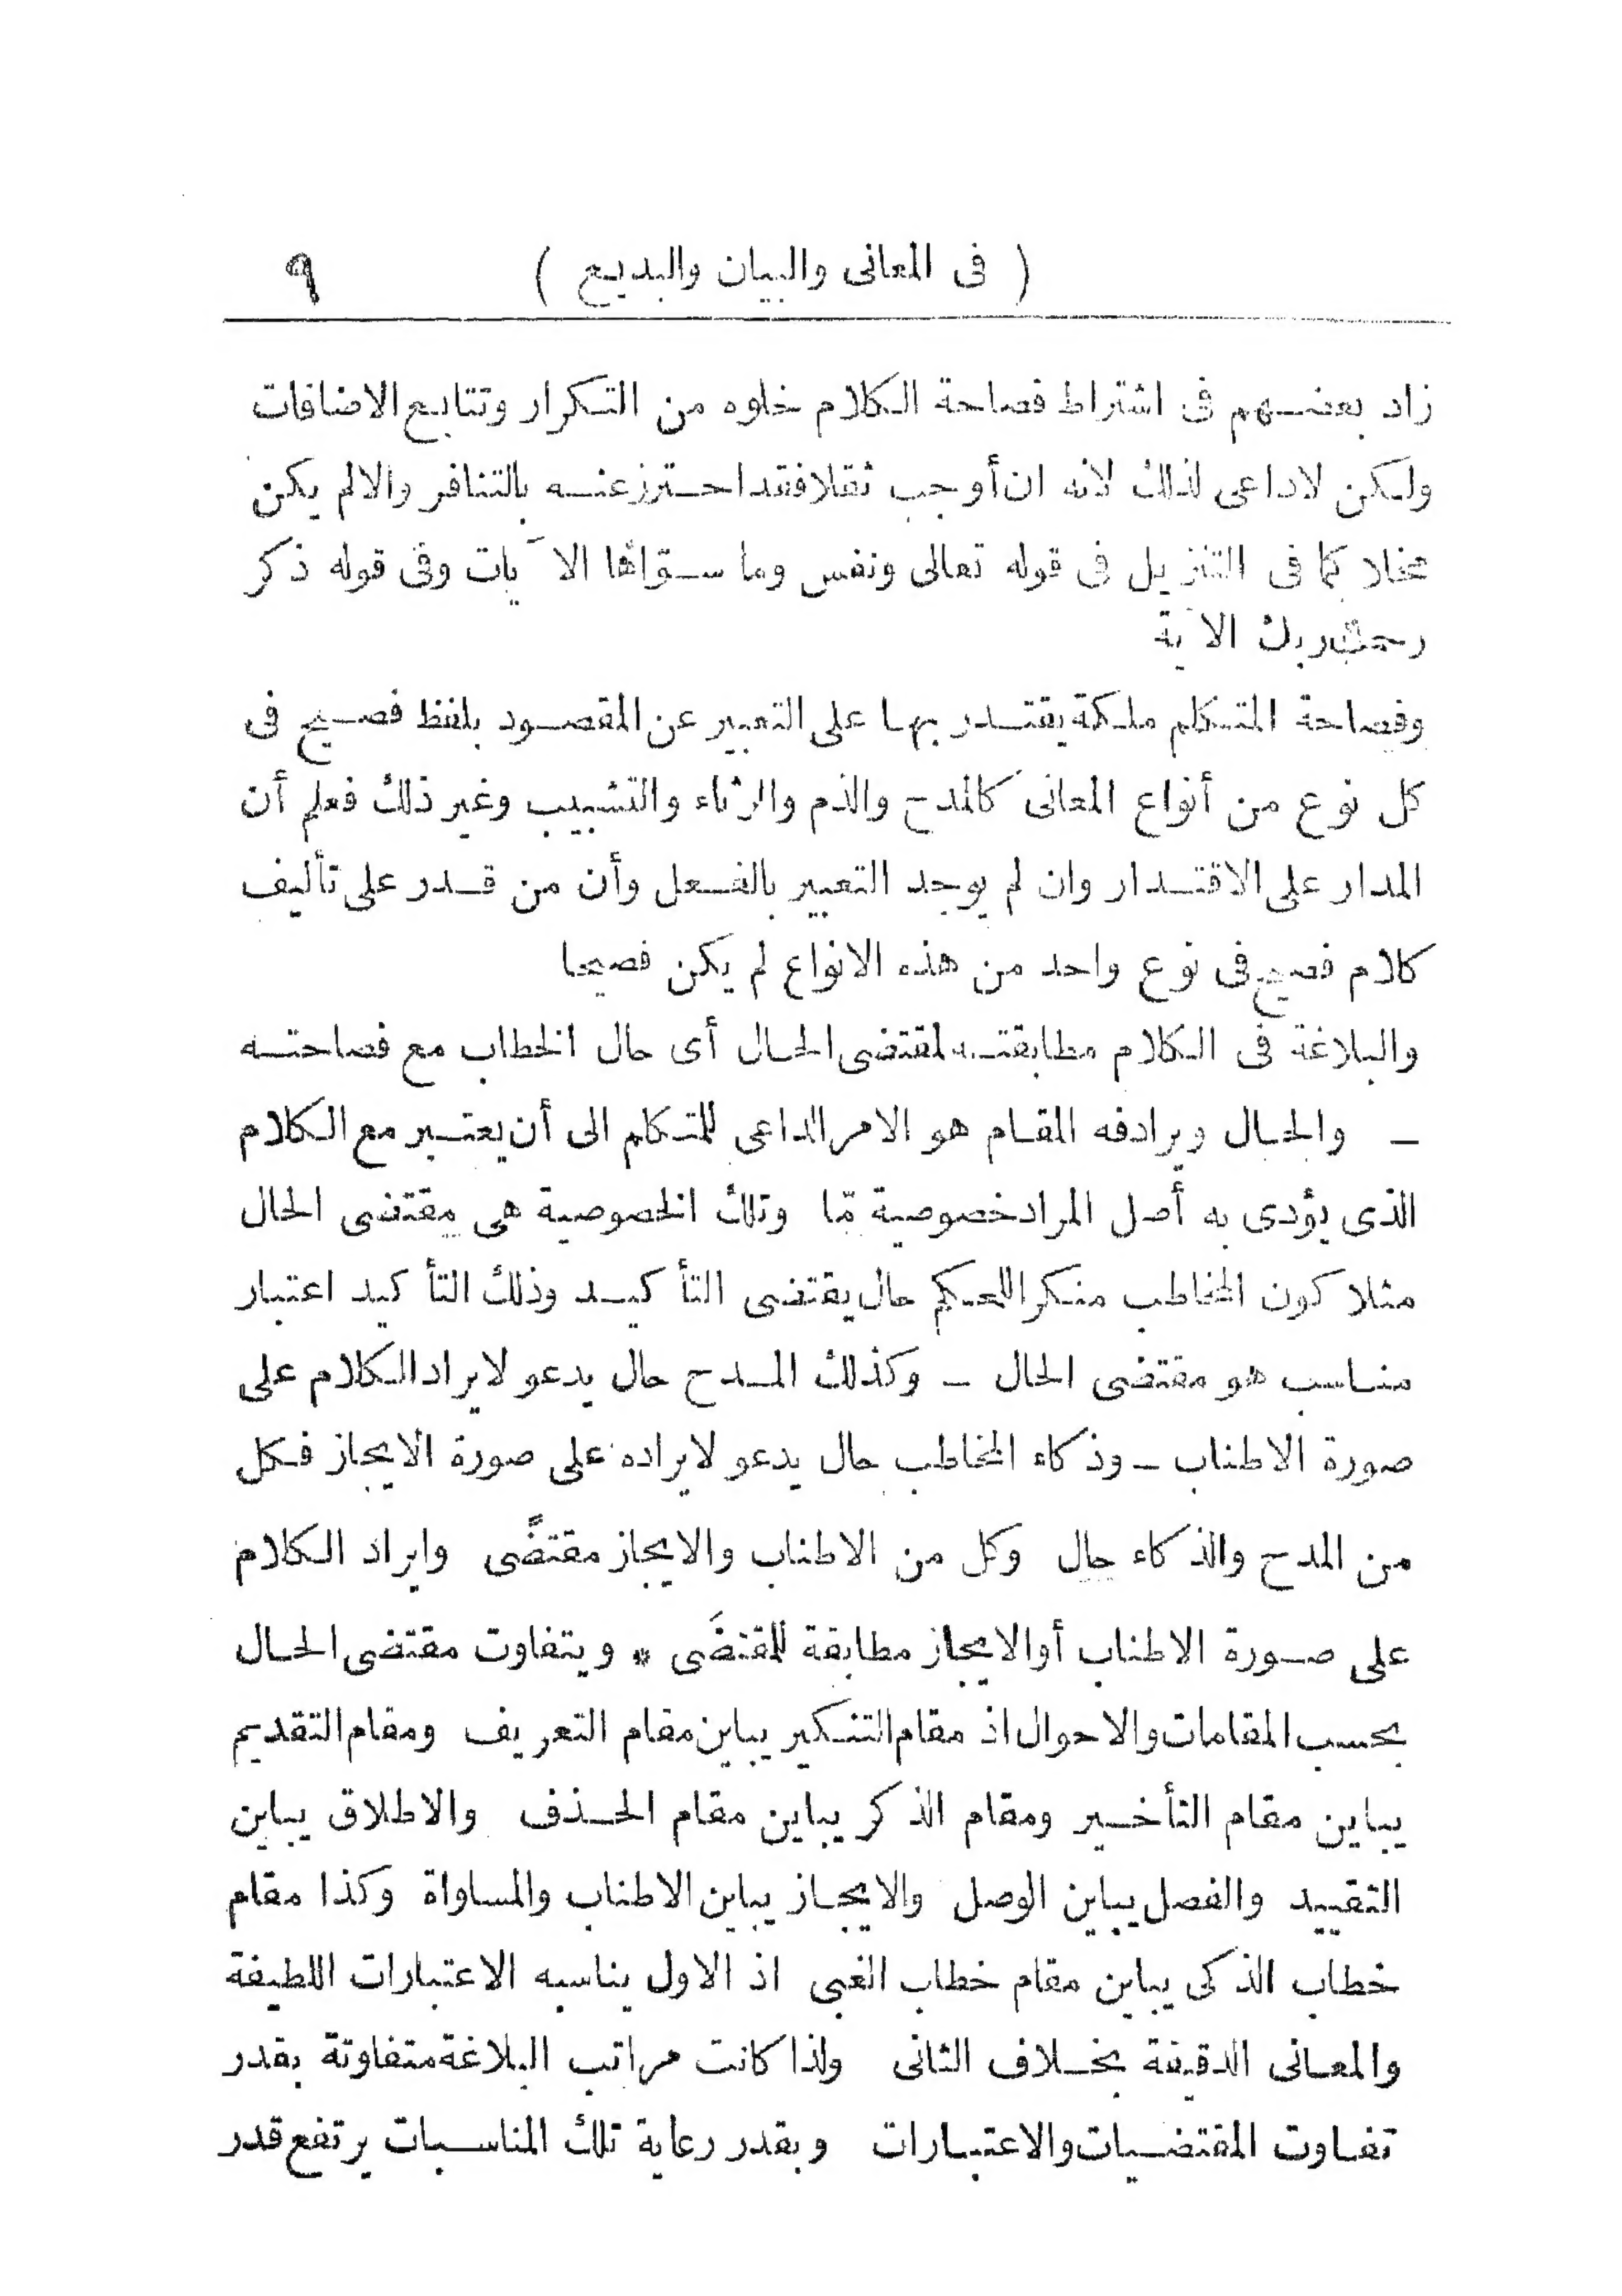 ( فى المعانى والبيان والبديع ) ٩
زاد بعضهم فى اشتراط فصاحة الكلام خلوه من التكرار وتتابع الاضافات
ولكن لاداعى لذلك لانه ان أوجب ثقلا فقد احترز عنه بالتنافر والا لم يكن
مخلا كما فى التنزيل فى قوله تعالى ونفس وما سوّاها الآيات وفى قوله ذكر
رحمت ربك الآية
وفصاحة المتكلم ملكة يقتدر بها على التعبير عن المقصود بلفظ فصيح فى
كل نوع من أنواع المعانى كالمدح والذم والرثاء والتشبيب وغير ذلك فعلم أن
المدار على الاقتدار وان لم يوجد التعبير بالفعل وأن من قدر على تأليف
كلام فصيح فى نوع واحد من هذه الانواع لم يكن فصيحا
والبلاغة فى الكلام مطابقته لمقتضى الحال أى حال الخطاب مع فصاحته
ـ والحال ويرادفه المقام هو الامر الداعى للمتكلم الى أن يعتبر مع الكلام
الذى يؤدى به أصل المراد خصوصية مّا وتلك الخصوصية هى مقتضى الحال
مثلا كون المخاطب منكرا للحكم حال يقتضى التأكيد وذلك التأكيد اعتبار
مناسب هو مقتضى الحال ـ وكذلك المدح حال يدعو لايراد الكلام على
صورة الاطناب ـ وذكاء المخاطب حال يدعو لايراده على صورة الايجاز فكل
من المدح والذكاء حال وكل من الاطناب والايجاز مقتضًى وايراد الكلام
على صورة الاطناب أو الايجاز مطابقة للمقتضَى * ويتفاوت مقتضى الحال
بحسب المقامات والاحوال اذ مقام التنكير يباين مقام التعريف ومقام التقديم
يباين مقام التأخير ومقام الذكر يباين مقام الحذف والاطلاق يباين
التقييد والفصل يباين الوصل والايجاز يباين الاطناب والمساواة وكذا مقام
خطاب الذكى يباين مقام خطاب الغبى اذ الاول يناسبه الاعتبارات اللطيفة
والمعانى الدقيقة بخلاف الثانى ولذا كانت مراتب البلاغة متفاوتة بقدر
تفاوت المقتضيات والاعتبارات وبقدر رعاية تلك المناسبات يرتفع قدر